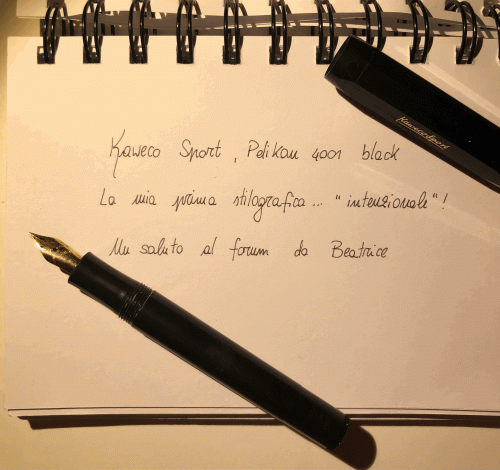 Kaweco Sport
Kaweco Sport, Pelikan 4001 black
La mia prima stilografica... "intenzionale"!
Un saluto al forum da Beatrice